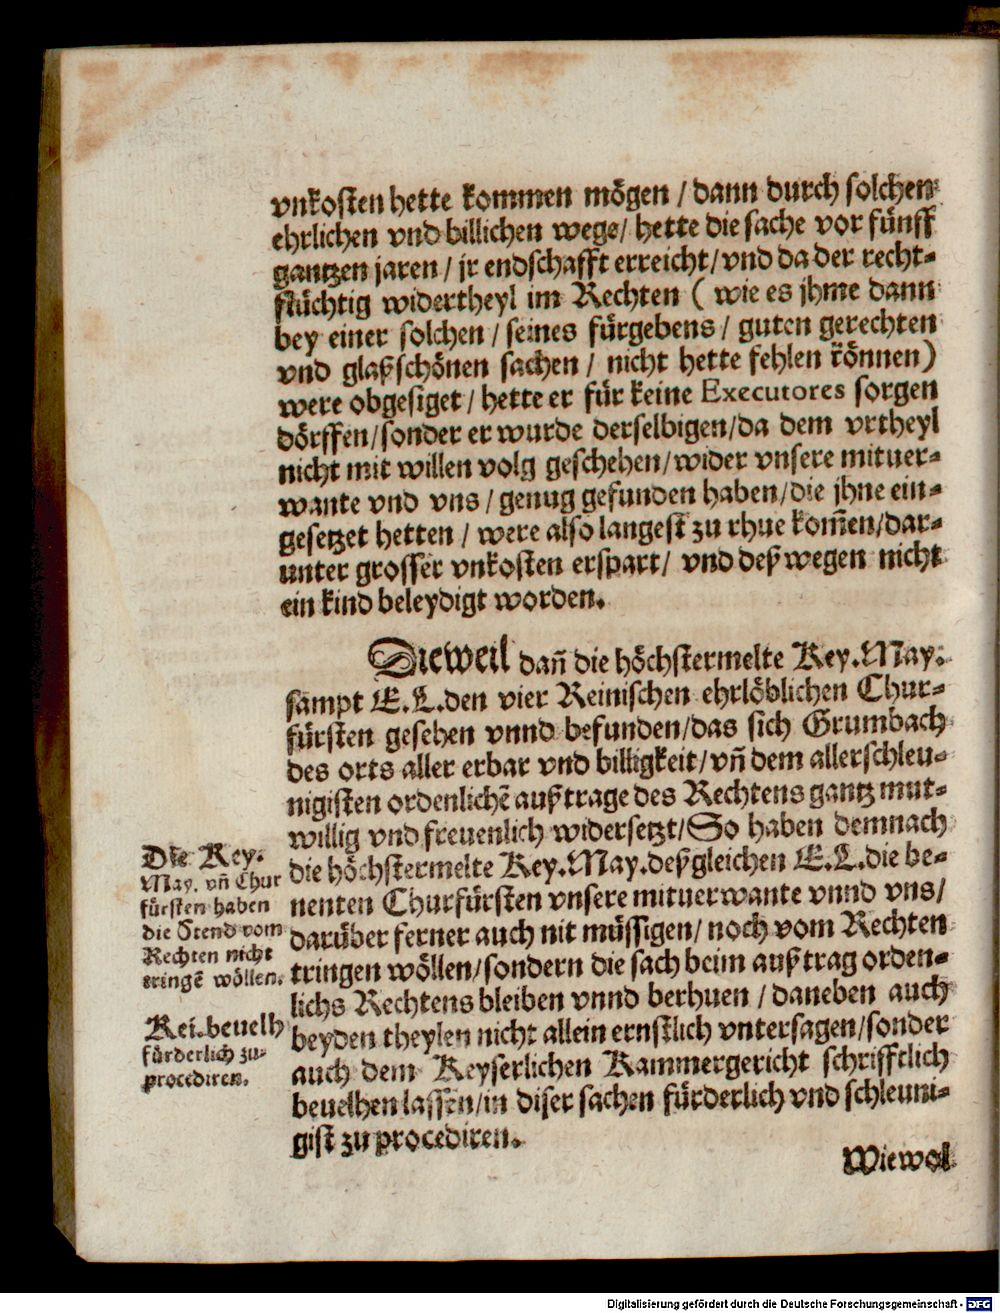 vnkosten hette kommen mögen / dann durch solchen
ehrlichen vnd billichen wege / hette die sache vor fünff
gantzen jaren / jr endschafft erreicht / vnd da der recht-
flüchtig widertheyl im Rechten ( wie es jhme dann
bey einer solchen / seines fürgebens / guten gerechten
vnd glaßschönen sachen / nicht hette fehlen können )
were obgesiget / hette er für keine Executores sorgen
dörffen / sonder er wurde derselbigen / da dem vrtheyl
nicht mit willen volg geschehen / wider vnsere mituer-
wante vnd vns / genug gefunden haben / die jhne ein-
gesetzet hetten / were also langest zu rhue kom̃en / dar-
unter grosser vnkosten erspart / vnd deßwegen nicht
ein kind beleydigt worden.
Dieweil dañ die höchstermelte Key. May.
sampt E. L. den vier Reinischen ehrlöblichen Chur-
fürsten gesehen vnnd befunden / das sich Grumbach
des orts aller erbar vnd billigkeit / vñ dem allerschleu-
nigisten ordenlichẽ außtrage des Rechtens gantz mut-
willig vnd freuenlich widersetzt / So haben demnach
die höchstermelte Key. May. deßgleichen E. L. die be-
nenten Churfürsten vnsere mituerwante vnnd vns /
darüber ferner auch nit müssigen / noch vom Rechten
tringen wöllen / sondern die sach beim außtrag orden-
lichs Rechtens bleiben vnnd berhuen / daneben auch
beyden theylen nicht allein ernstlich vntersagen / sonder
auch dem Keyserlichen Kammergericht schrifftlich
beuelhen lassen / in diser sachen fürderlich vnd schleuni-
gist zu procediren.
Wiewol
Die Key.
May. vñ Chur
fürsten haben
die Stend vom
Rechten nicht
tringẽ wöllen.
Kei. beuelh
fürderlich zu-
procediren.
Digitalisierung gefördert durch die Deutsche Forschungsgemeinschaft - DFG